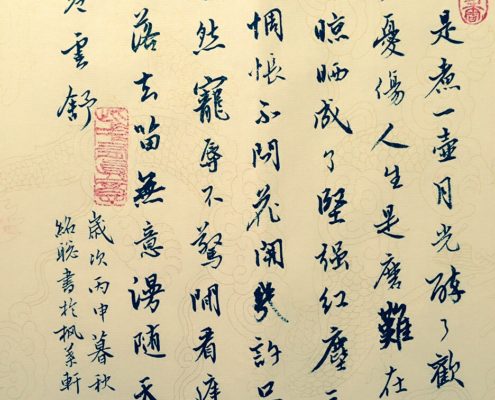 是煮一壺月光醉了歡
憂傷人生是磨難在
晾晒成了堅强红塵
惆悵不問花開幾許只
然寵辱不驚閒看庭
落去留無意漫隨天
雲舒
歲次丙申暮秋
紹聪書於楓葉軒